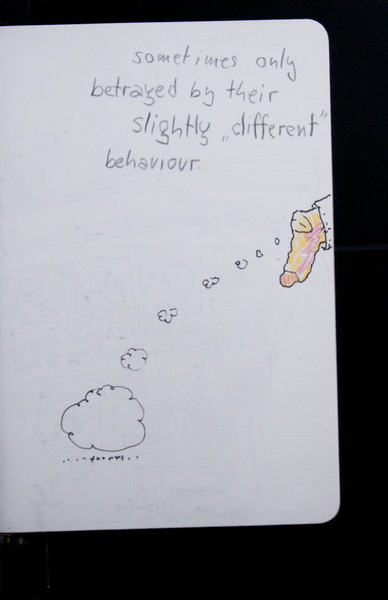 sometimes only
betrayed by their
slightly „different"
behaviour.